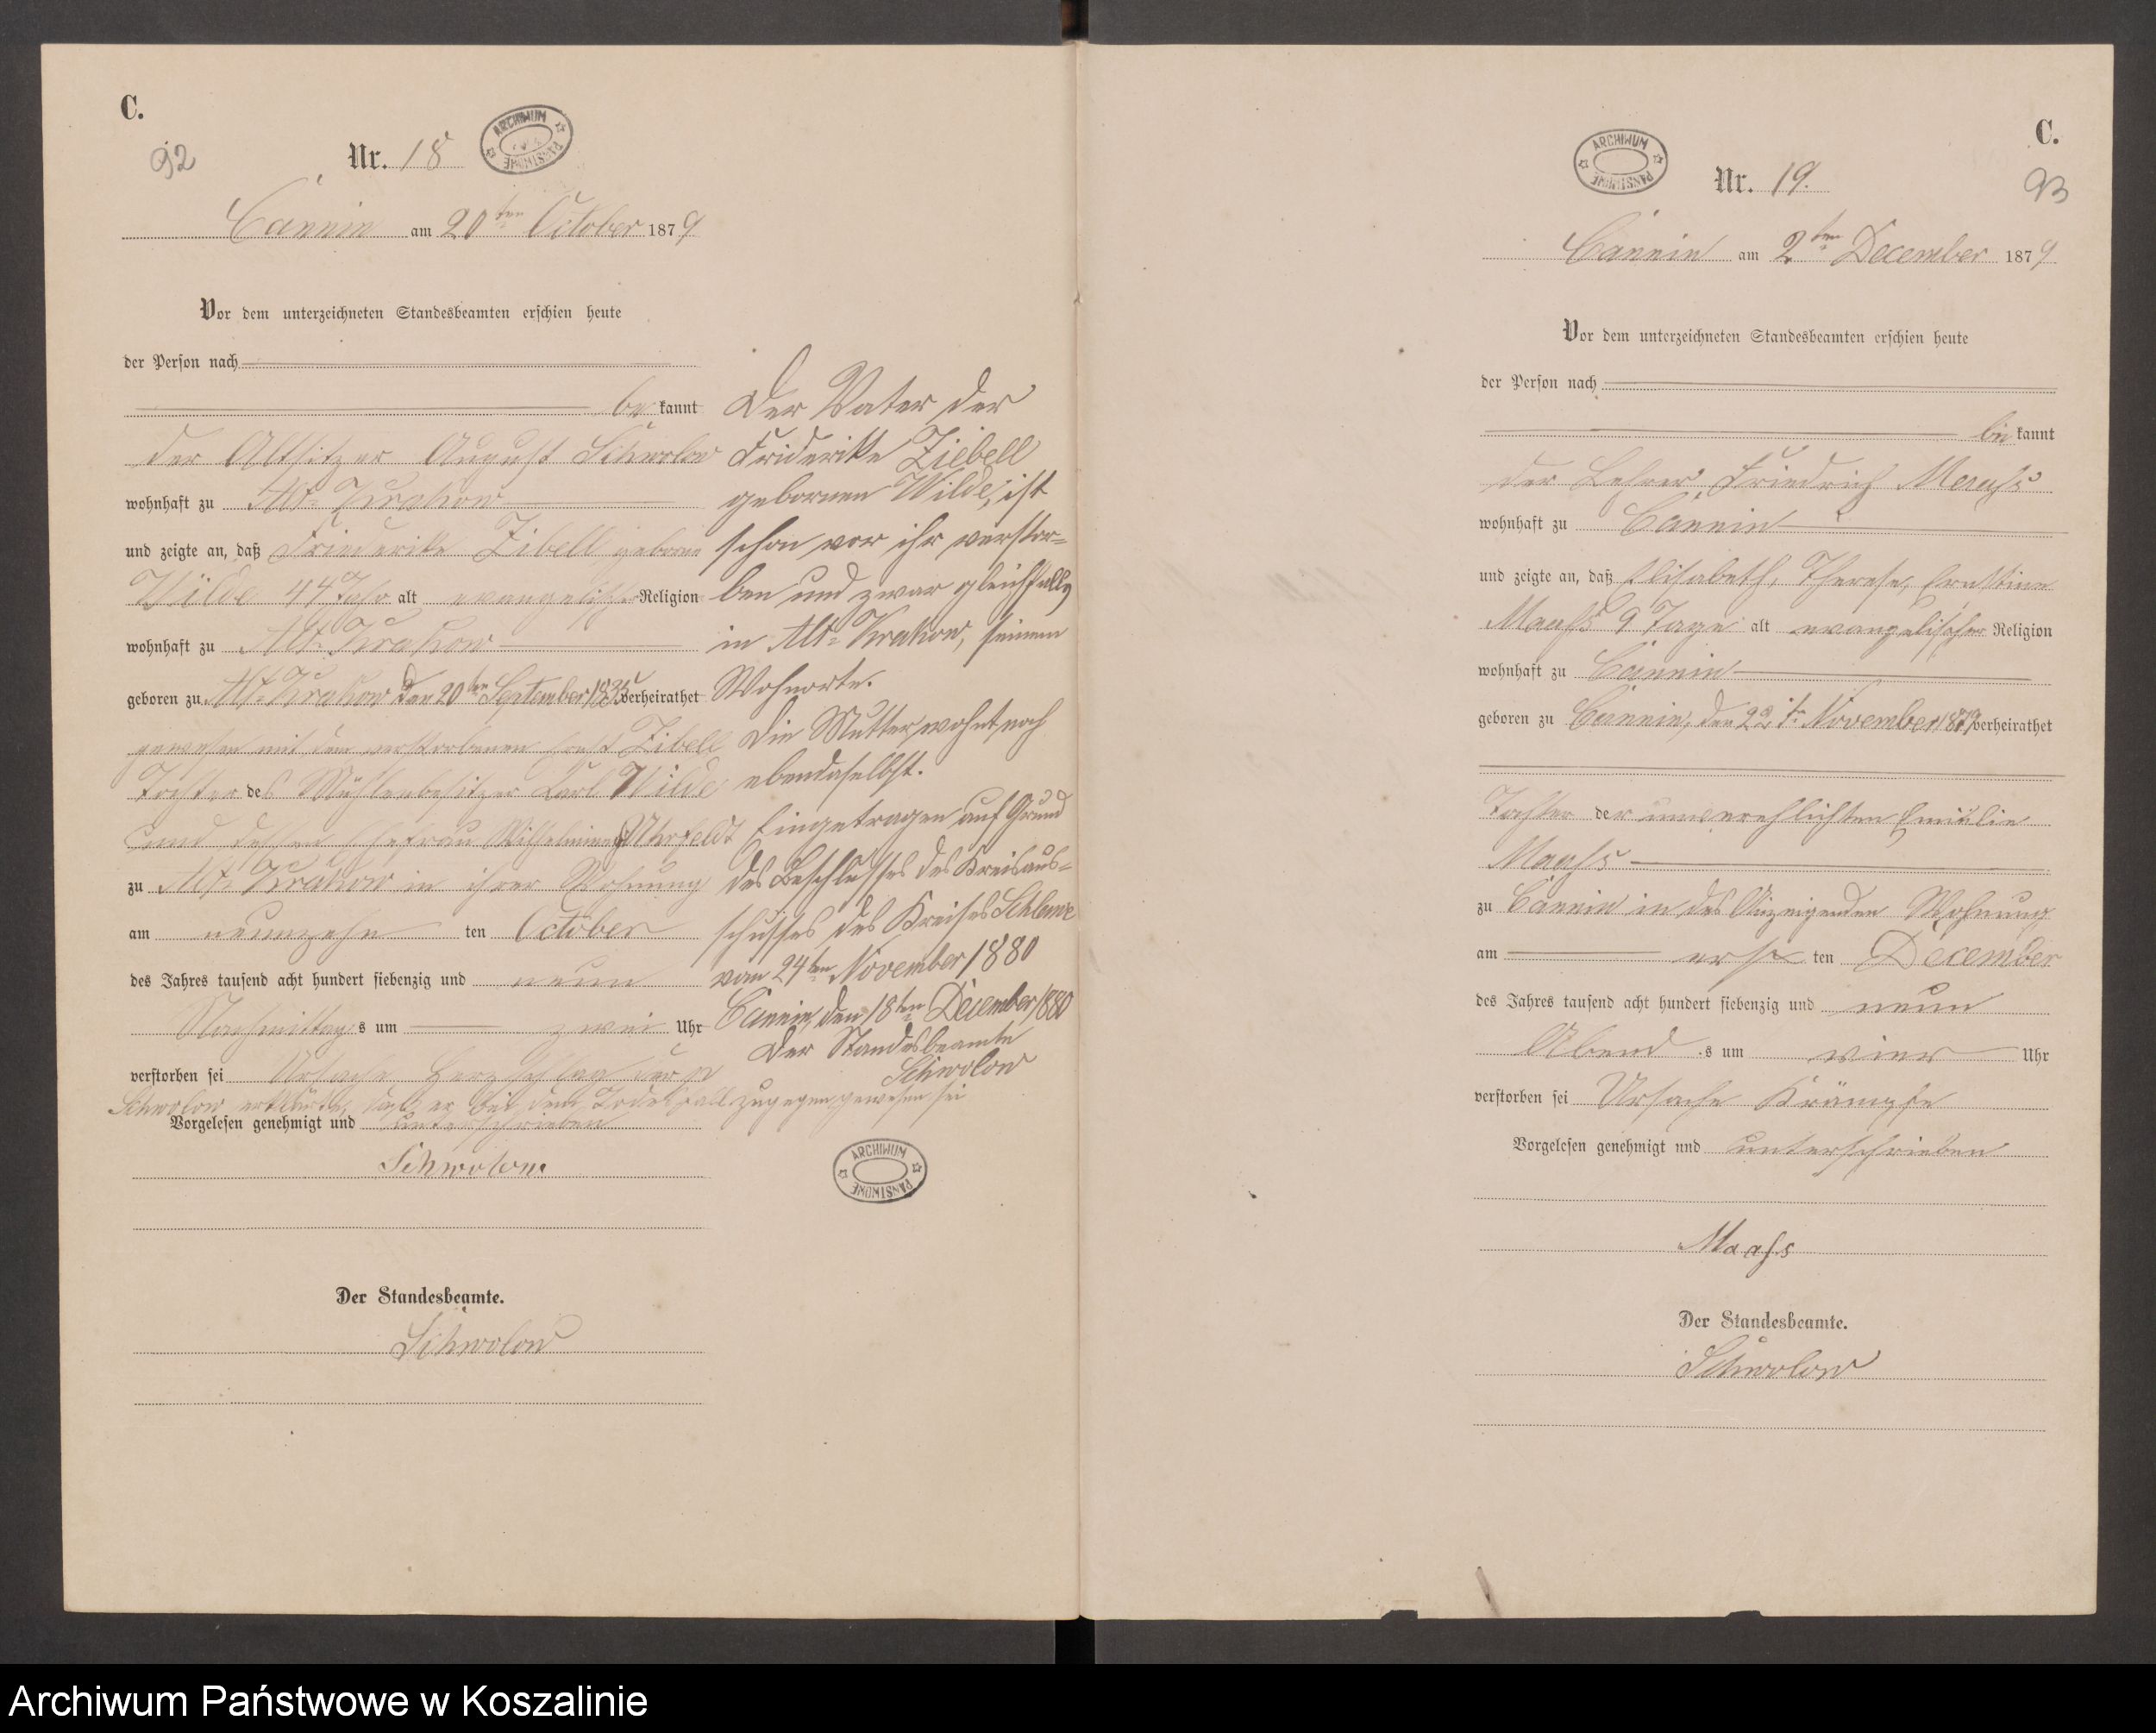 C.
92
Nr. 18
ARCHIWUM PAŃSTWOWE
Cannin am 20ten October 1879
Vor dem unterzeichneten Standesbeamten erschien heute
der Person nach
bekannt
der Altsitzer August Schwolow
wohnhaft zu Alt-Krakow
und zeigte an, daß Friederike Zibell geborne
Wilde 44 Jahr alt evangelischer Religion
wohnhaft zu Alt-Krakow
geboren zu Alt-Krakow den 20ten September 1835 verheirathet
gewesen mit dem verstorbenen Zibell
Tochter des Mühlenbesitzer Carl Wilde
und dessen Ehefrau Wilhelmine
zu Alt-Krakow in ihrer Wohnung
am neunzehn ten October
des Jahres tausend acht hundert siebenzig und neun
Nachmittags um zwei Uhr
verstorben sei Ursache Herzschlag der p
Schwolow erklärte, daß er bei dem Todesfall zugegen gewesen sei
Vorgelesen genehmigt und unterschrieben
Schwolow
Der Standesbeamte.
Schwolow
Der Vater der
Friderike Ziebell
gebornen Wilde, ist
schon vor ihr verstor=
ben und zwar gleichfalls
in Alt-Krakow, seinem
Wohnorte.
Die Mutter wohnt noch
ebendaselbst.
Eingetragen auf Grund
des Beschlusses des Kreisaus=
schusses des Kreises Schlawe
vom 24ten November 1880
Cannin, den 18ten December 1880
Der Standesbeamte
Schwolow
ARCHIWUM PAŃSTWOWE
C.
93
ARCHIWUM PAŃSTWOWE
Nr. 19.
Cannin am 2ten December 1879
Vor dem unterzeichneten Standesbeamten erschien heute
der Person nach
bekannt
der Lehrer Friedrich Maahs
wohnhaft zu Cannin
und zeigte an, daß Elisabeth, Therese, Ernstine
Maahs 9 Tage alt evangelischer Religion
wohnhaft zu Cannin
geboren zu Cannin, den 22t. November 1879 verheirathet
Tochter der unverehlichten Emilie
Maahs
zu Cannin in des Anzeigenden Wohnung
am ersten December
des Jahres tausend acht hundert siebenzig und neun
Abends um vier Uhr
verstorben sei Ursache Krämpfe
Vorgelesen genehmigt und unterschrieben
Maahs
Der Standesbeamte.
Schwolow
Archiwum Państwowe w Koszalinie